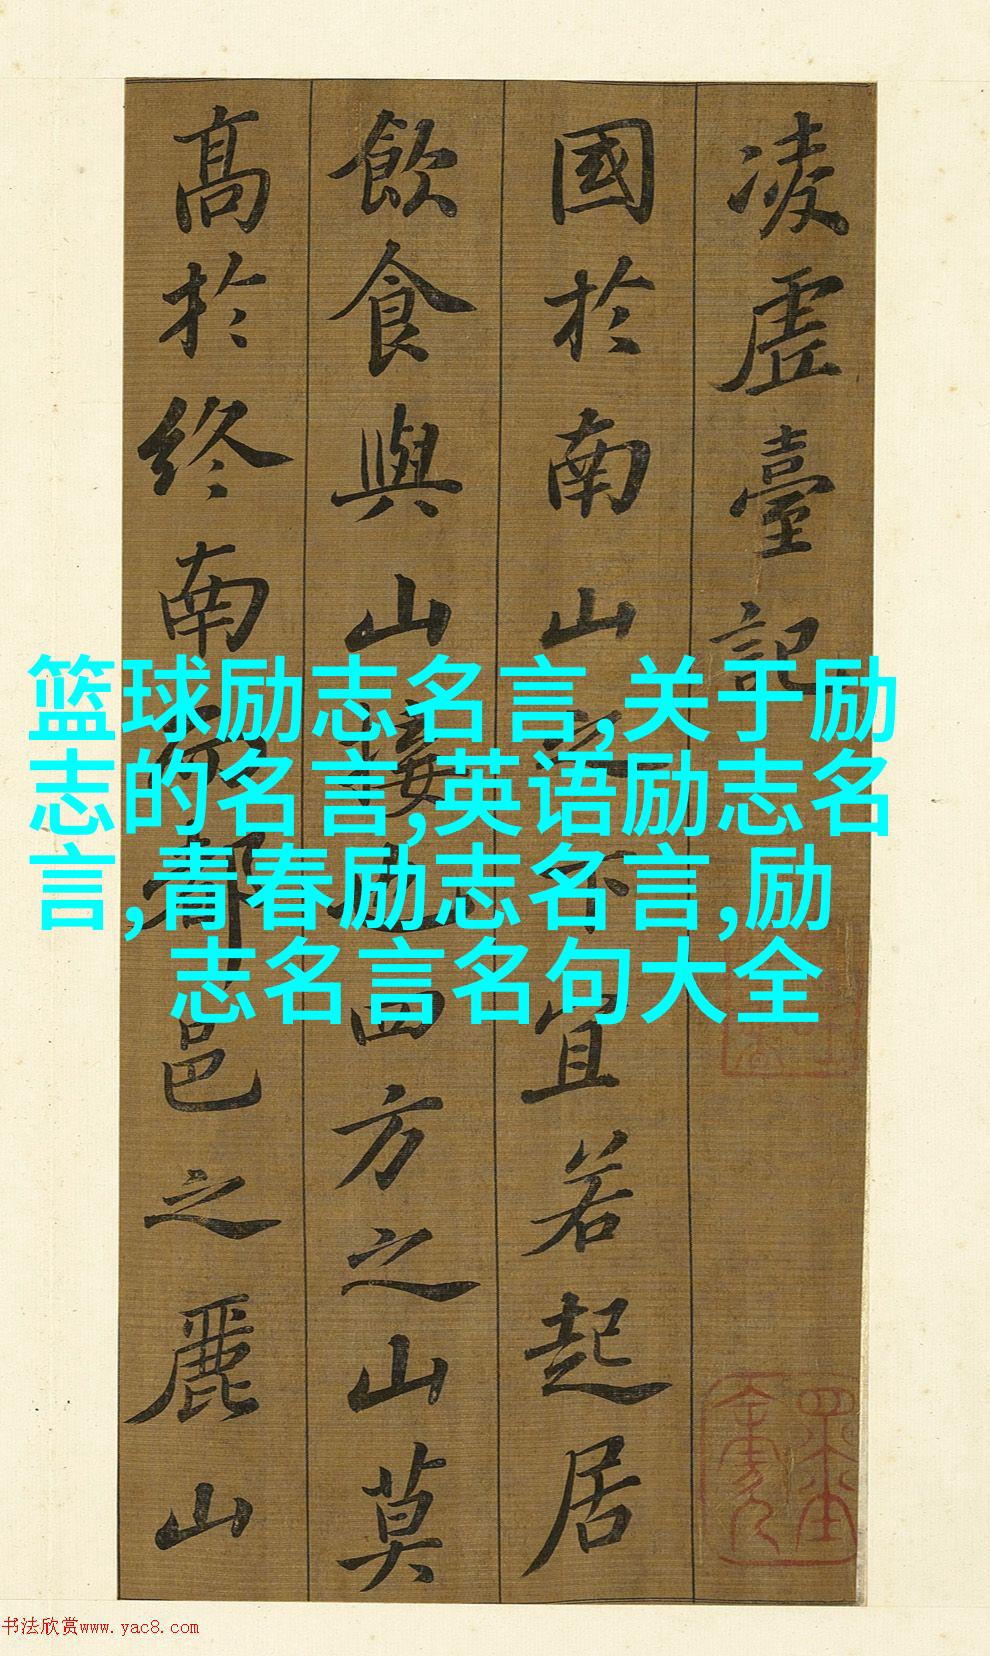 凌虛臺記
國於南山之下宜若起居
飲食與山接也四方之山莫
高於終南而都邑之麗山
篮球励志名言,关于励
志的名言,英语励志名
言,青春励志名言,励
志名言名句大全
书法欣赏www.yac8.com